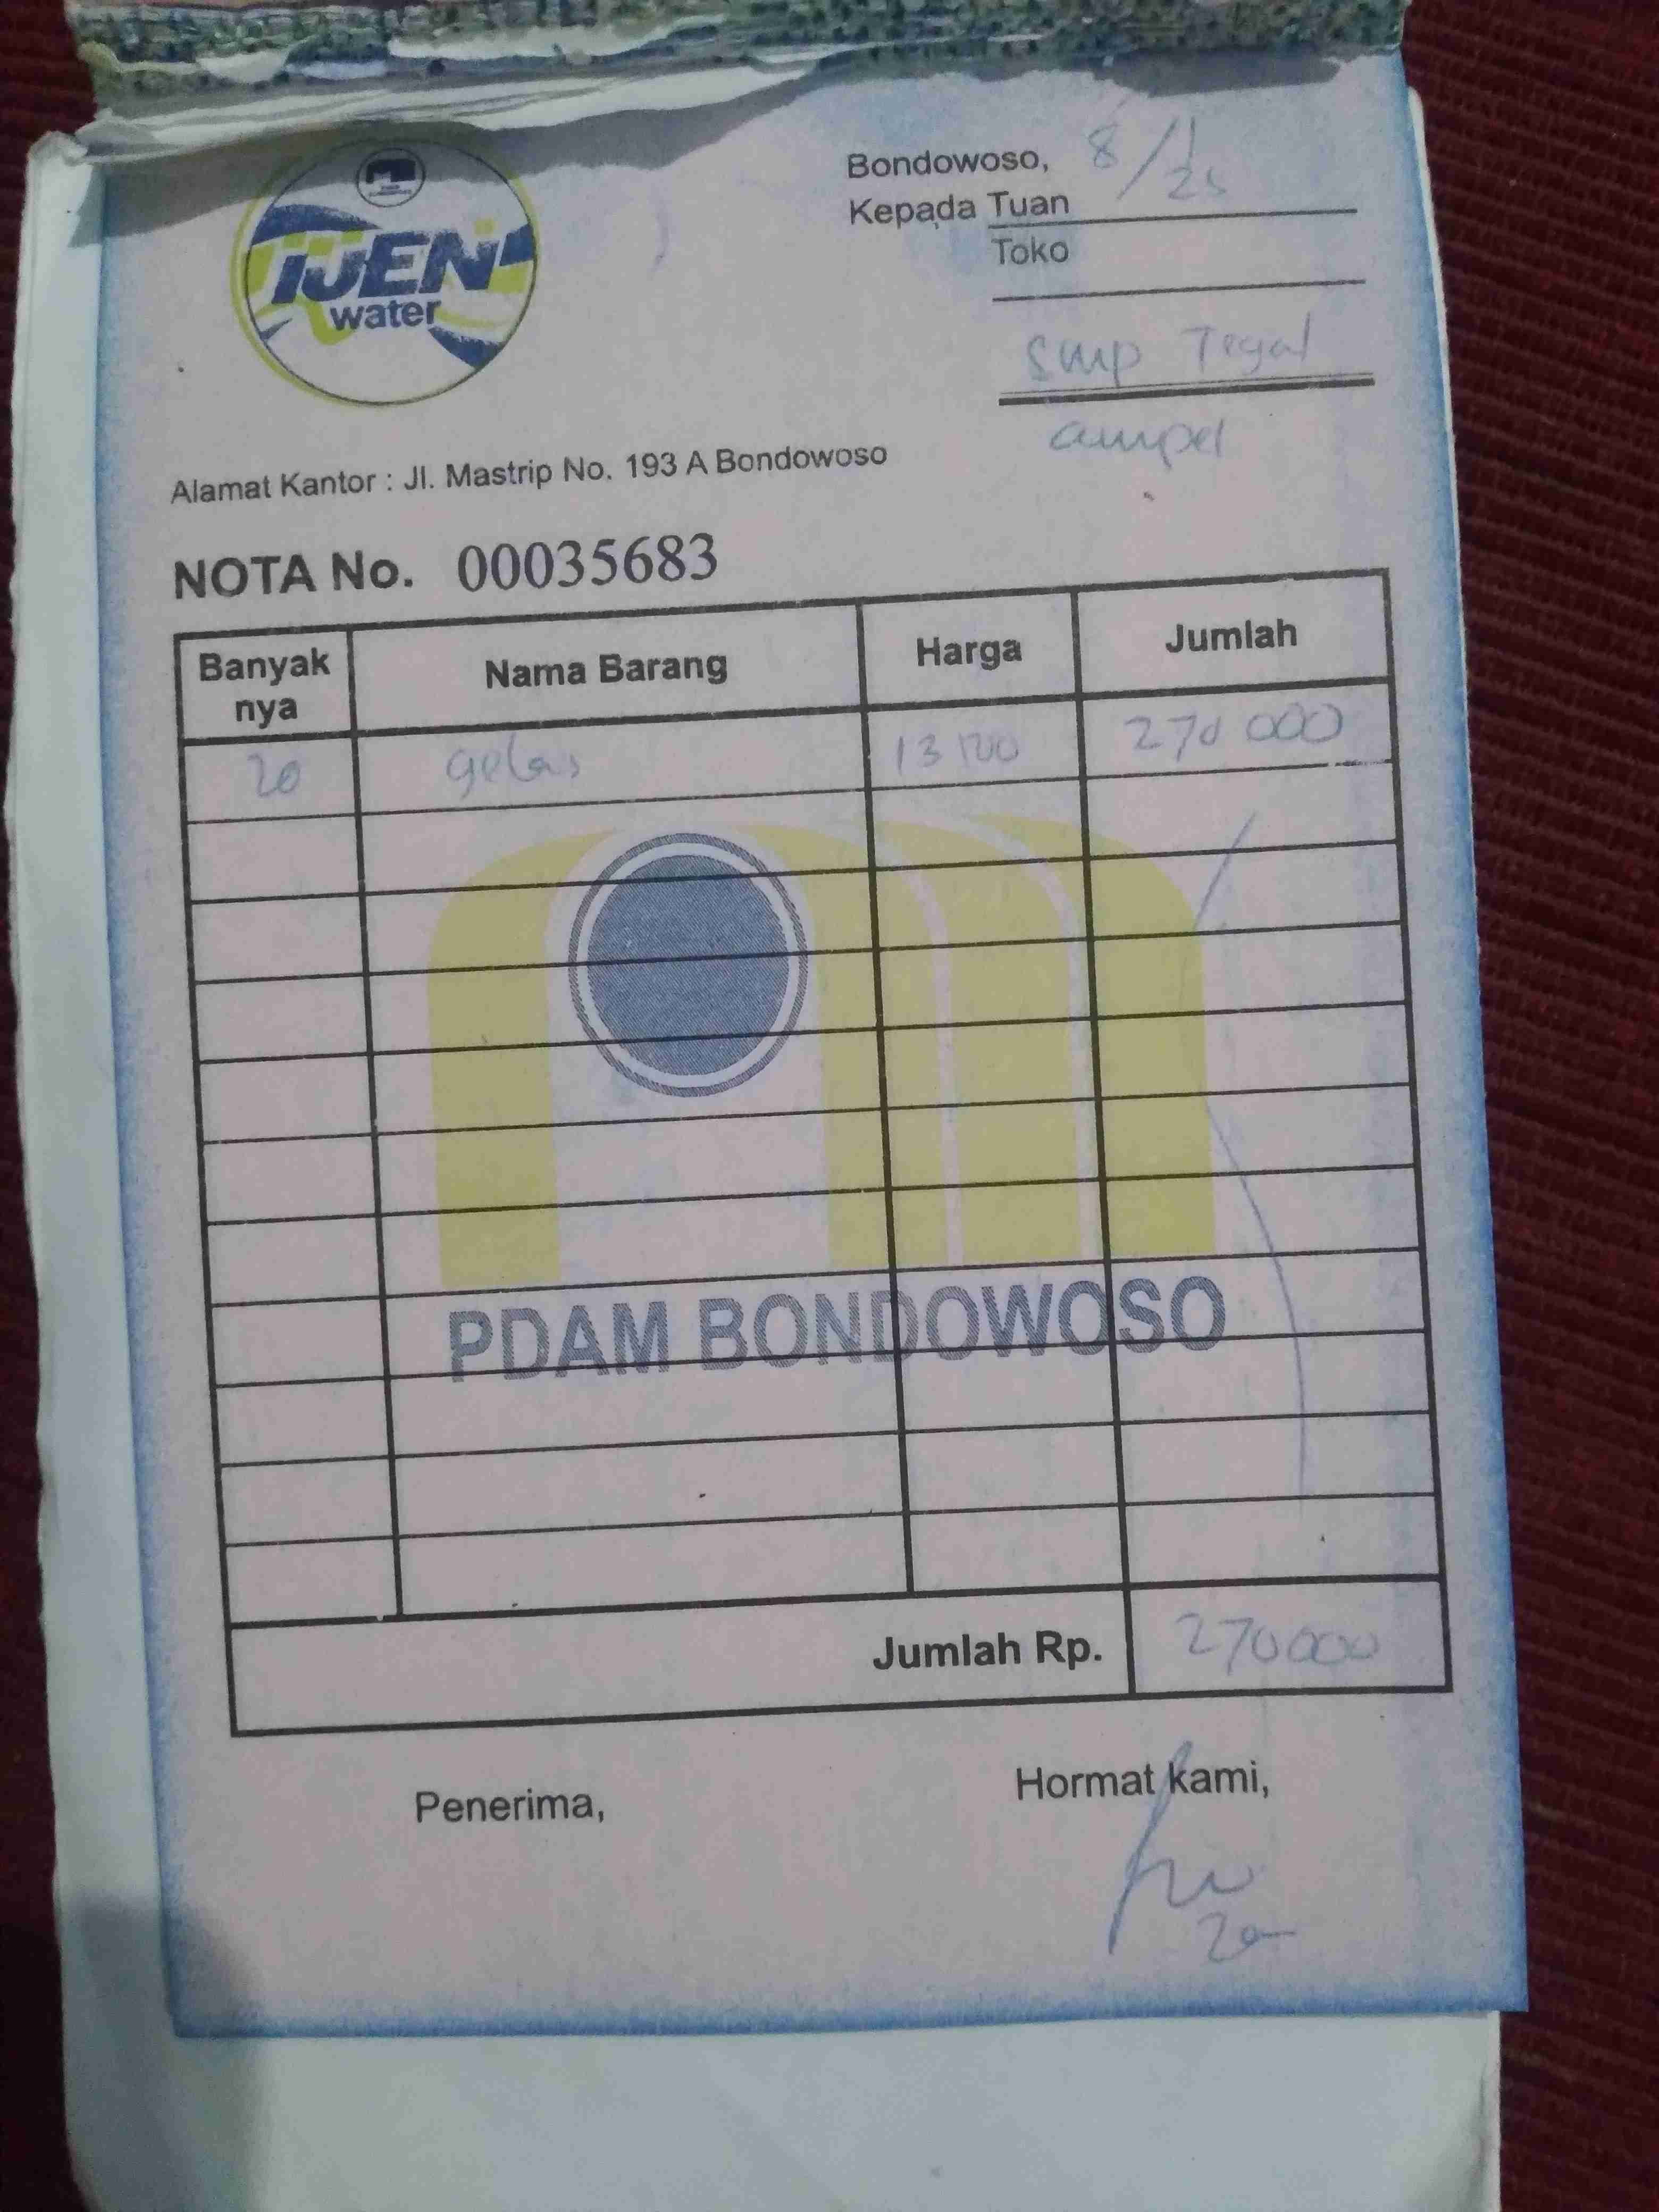 IJEN
water
Bondowoso, 8/1 25
Kepada Tuan
Toko
SMP Tegal
ampel
Alamat Kantor : Jl. Mastrip No. 193 A Bondowoso
NOTA No. 00035683
Banyak nya Nama Barang Harga Jumlah
20 gelas 270 000
PDAM BONDOWOSO
Jumlah Rp. 270000
Penerima, Hormat kami,